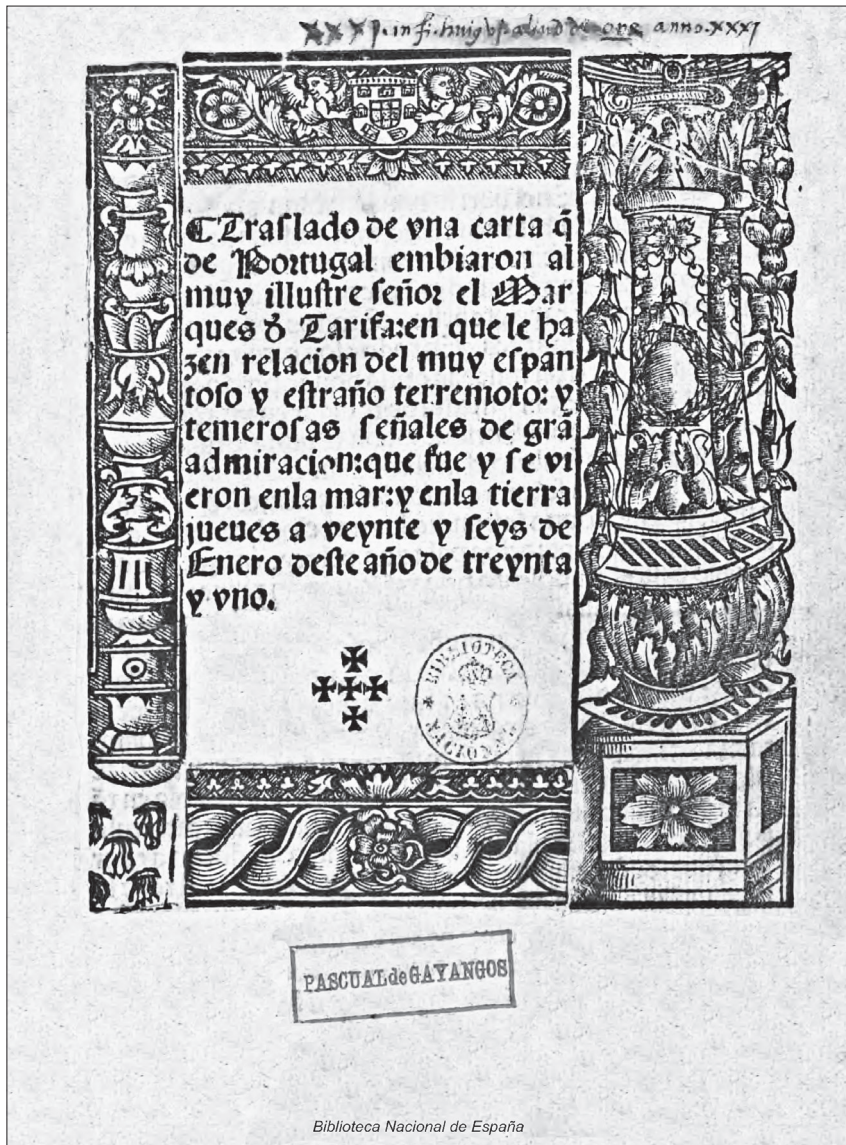 anno. xxxj
¶ Traſlado de vna carta q̃
de Portugal embiaron al
muy illuſtre ſeñor el Mar
ques d̓ Tarifa:en que le ha
zen relacion del muy eſpan
toſo y eſtraño terremoto: y
temeroſas ſeñales de grã
admiracion:que fue y ſe vi
eron enla mar:y enla tierra
jueues a veynte y ſeys de
Enero deſte año de treynta
y vno.
BIBLIOTECA NACIONAL
PASCUAL de GAYANGOS
Biblioteca Nacional de España